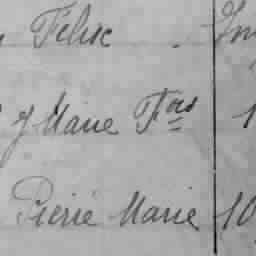 Félix
J Marie Fois 1
Pierre Marie 10